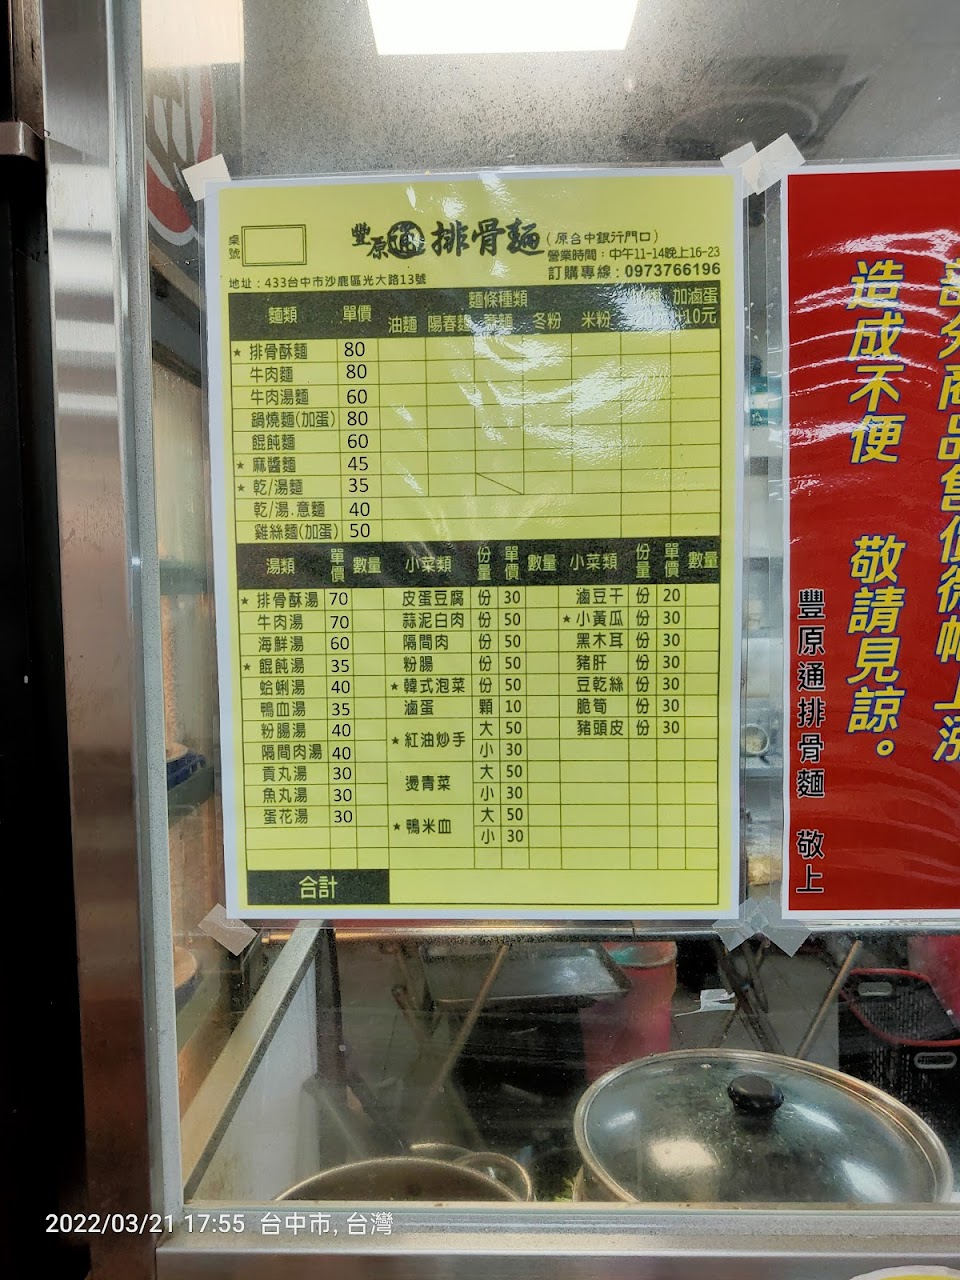 桌號
豐原通排骨麵(原台中銀行門口)
營業時間：中午11-14晚上16-23
地址：433台中市沙鹿區光大路13號
訂購專線：0973766196
麵類 單價 麵條種類 加滷蛋
油麵 陽春麵 意麵 冬粉 米粉 10元
★排骨酥麵 80
牛肉麵 80
牛肉湯麵 60
鍋燒麵(加蛋) 80
餛飩麵 60
★麻醬麵 45
★乾/湯麵 35
乾/湯.意麵 40
雞絲麵(加蛋) 50
湯類 單價 數量 小菜類 份量 單價 數量 小菜類 份量 單價 數量
★排骨酥湯 70 皮蛋豆腐 份 30 滷豆干 份 20
牛肉湯 70 蒜泥白肉 份 50 ★小黃瓜 份 30
海鮮湯 60 隔間肉 份 50 黑木耳 份 30
★餛飩湯 35 粉腸 份 50 豬肝 份 30
蛤蜊湯 40 ★韓式泡菜 份 50 豆乾絲 份 30
鴨血湯 35 滷蛋 顆 10 脆筍 份 30
粉腸湯 40 ★紅油炒手 大 50 豬頭皮 份 30
隔間肉湯 40 小 30
貢丸湯 30 燙青菜 大 50
魚丸湯 30 小 30
蛋花湯 30 ★鴨米血 大 50
小 30
合計
部分商品售價微幅上漲
造成不便 敬請見諒。
豐原通排骨麵 敬上
2022/03/21 17:55 台中市, 台灣